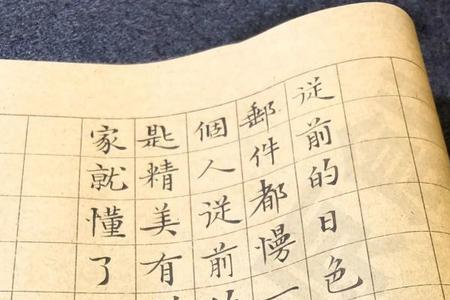 從前的日色
郵件都慢一
個人從前
匙精美有
家就懂了